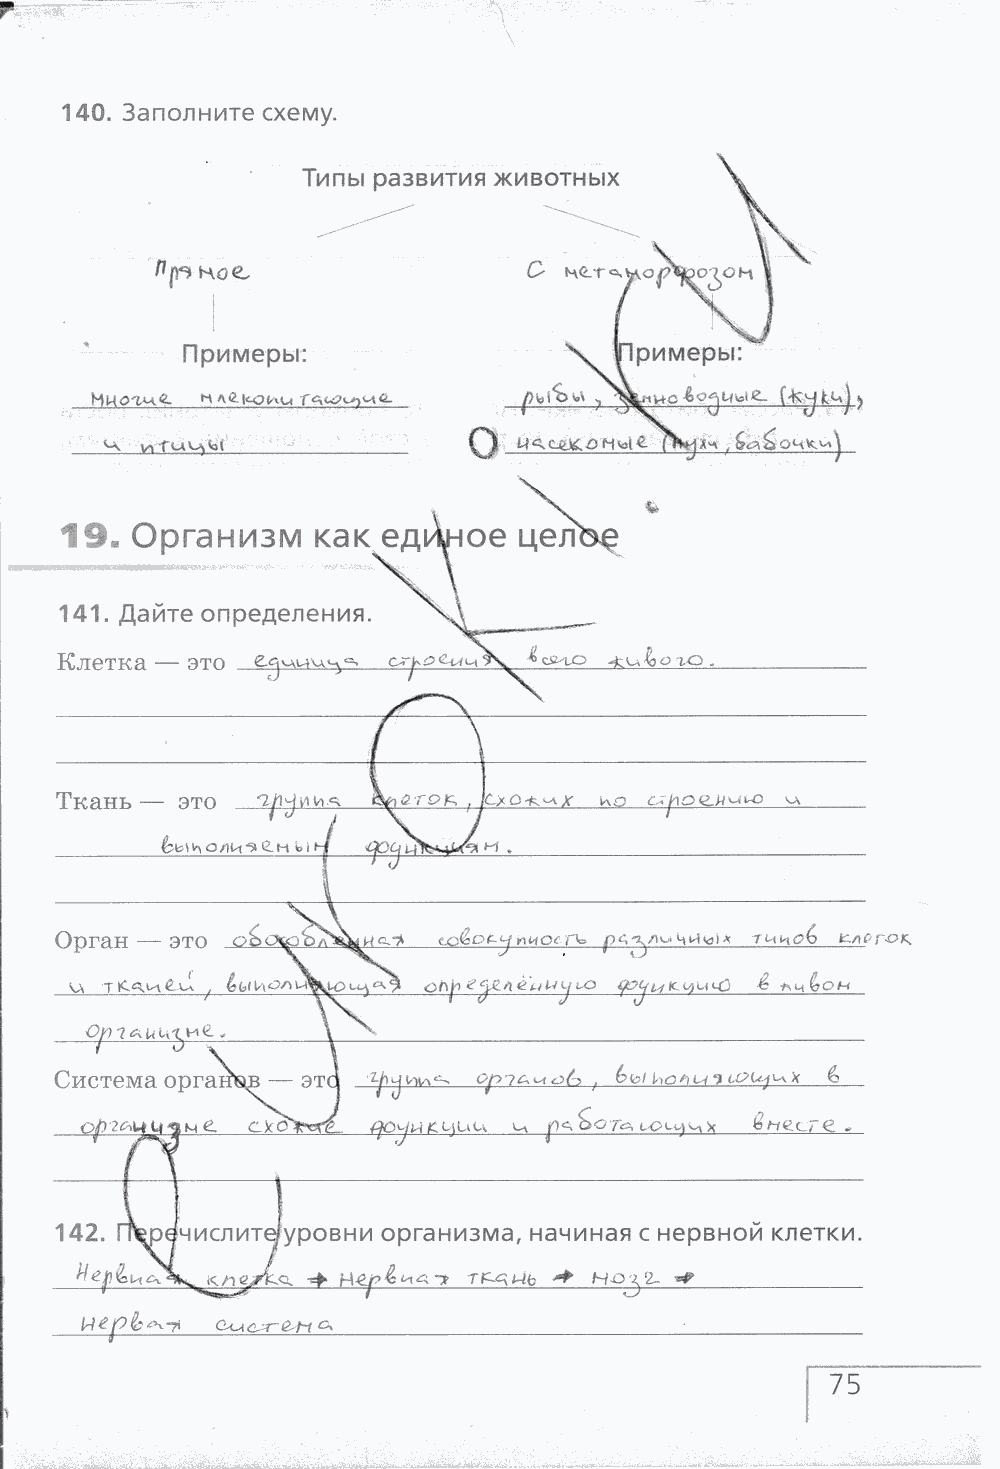 140. Заполните схему.
Типы развития животных
Прямое
С метаморфозом
Примеры:
Примеры:
многие млекопитающие
и птицы
рыбы, земноводные (жуки),
насекомые (мухи, бабочки)
19. Организм как единое целое
141. Дайте определения.
Клетка — это единица строения всего живого.
Ткань — это группа клеток, схожих по строению и
выполняемым функциям.
Орган — это обособленная совокупность различных типов клеток
и тканей, выполняющая определённую функцию в живом
организме.
Система органов — это группа органов, выполняющих в
организме схожие функции и работающих вместе.
142. Перечислите уровни организма, начиная с нервной клетки.
Нервная клетка → нервная ткань → мозг →
нервая система
75